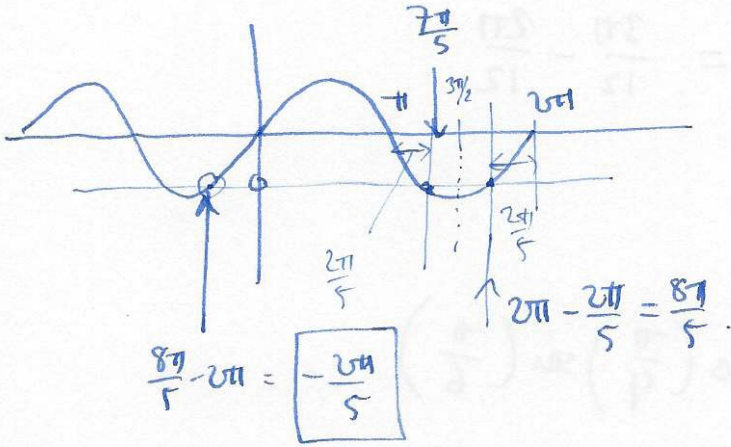 7π/5
π
3π/2
2π
0
2π/5
2π/5
2π - 2π/5 = 8π/5.
8π/5 - 2π = -2π/5